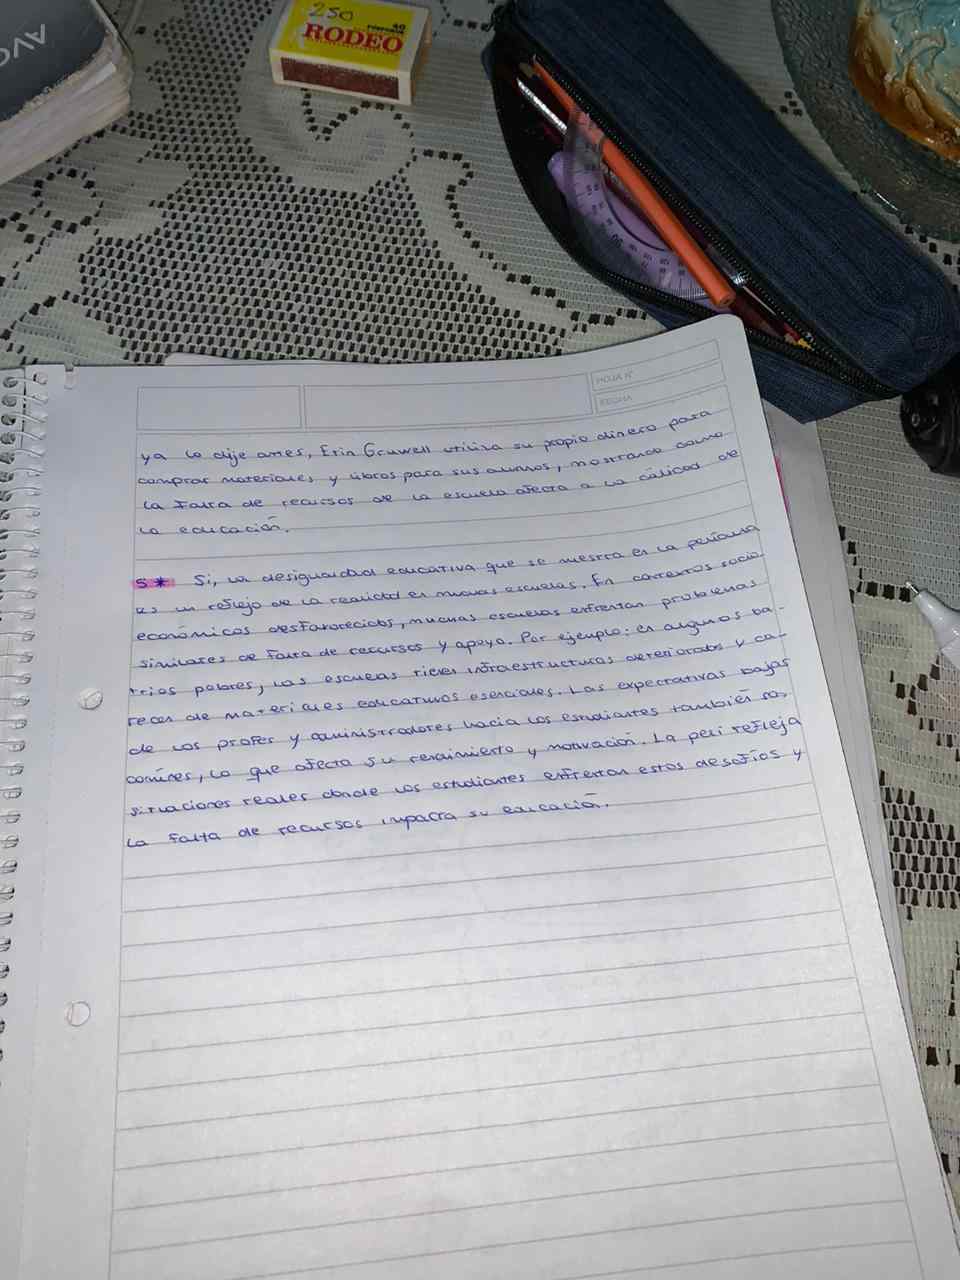 AVO
250
40
FÓSFOROS
RODEO
HOJA N°
FECHA
ya lo dije antes, Erin Gruwell utiliza su propio dinero para
comprar materiales y libros para sus alumnos, mostrando como
la falta de recursos de la escuela afecta a la calidad de
la educación.
5 * Si, la desigualdad educativa que se muestra en la película
es un reflejo de la realidad en muchas escuelas. En contextos socio
económicos desfavorecidos, muchas escuelas enfrentan problemas
similares de falta de recursos y apoyo. Por ejemplo: en algunos ba-
rrios pobres, las escuelas tienen infraestructuras deteriorados y ca-
recen de materiales educativos esenciales. Las expectativas bajas
de los profes y administradores hacia los estudiantes también son
comúnes, lo que afecta su rendimiento y motivación. La peli refleja
situaciones reales donde los estudiantes enfrentan estos desafíos y
la falta de recursos impacta su educación.